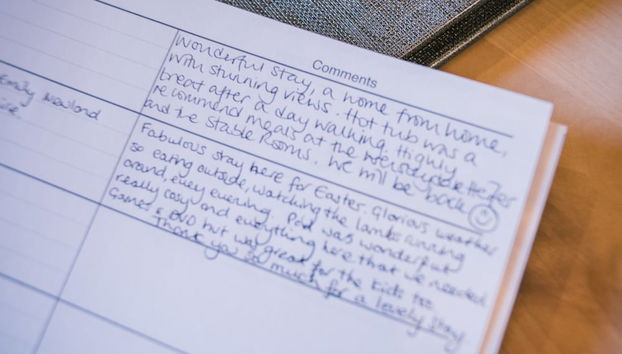 Comments
Wonderful stay, a home from home,
with stunning views. Hot tub was a
great after a day walking. Highly
recommend meals at the
and the Stable Rooms. We will be back
Fabulous stay here for Easter. Glorious weather
so eating outside, watching the lambs running
around, every evening. Pod was wonderful
really cosy and everything here that we needed
Games & DVD but was great for the kids too
Thank you so much for a lovely stay